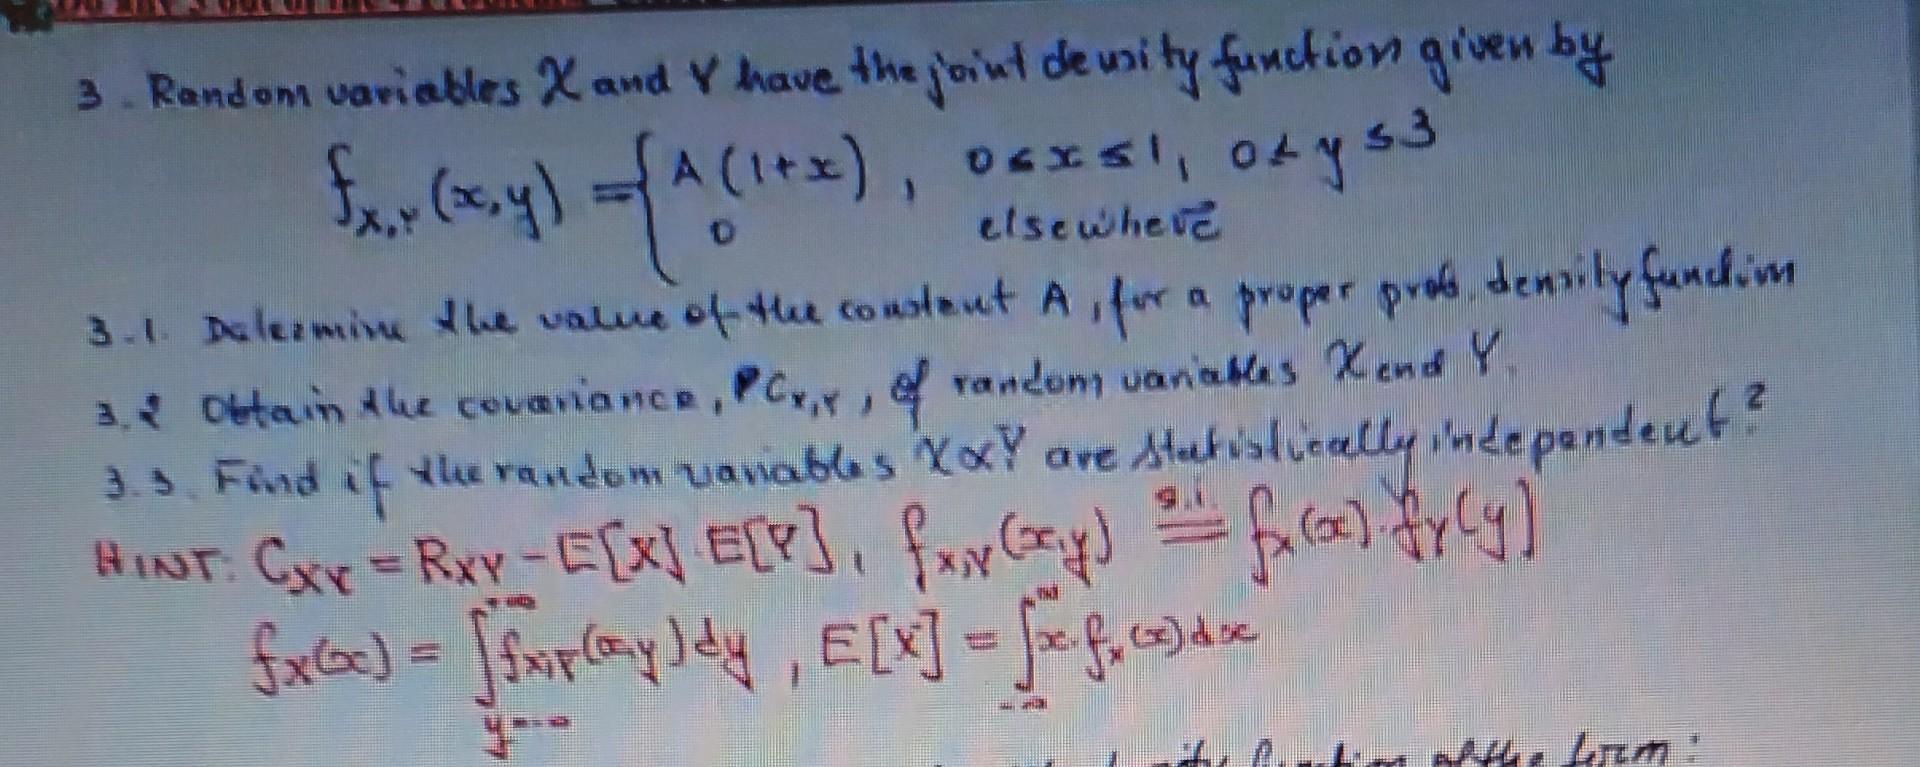 3. Random variables X and Y have the joint density function given by
f_{X,Y}(x,y) = { A(1+x), 0≤x≤1, 0≤y≤3
0 elsewhere
3.1. Determine the value of the constant A, for a proper prob. density function
3.2 Obtain the covariance, C_{X,Y}, of random variables X and Y.
3.3. Find if the random variables X & Y are statistically independent?
HINT: C_{XY} = R_{XY} - E[X].E[Y], f_{X,Y}(x,y) =^{s.i.} f_X(x).f_Y(y)
f_X(x) = ∫_{y=-∞}^{+∞} f_{X,Y}(x,y)dy, E[X] = ∫_{-∞}^{∞} x.f_X(x)dx
of the form: